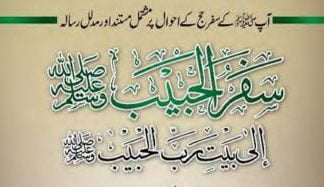 آپ ﷺ کے سفر حج کے احوال پر مشتمل مستند اور مدلل رسالہ
سَفَرُ الحَبِيب ﷺ
إِلىٰ بَيْتِ رَبِّ الحَبِيب ﷺ